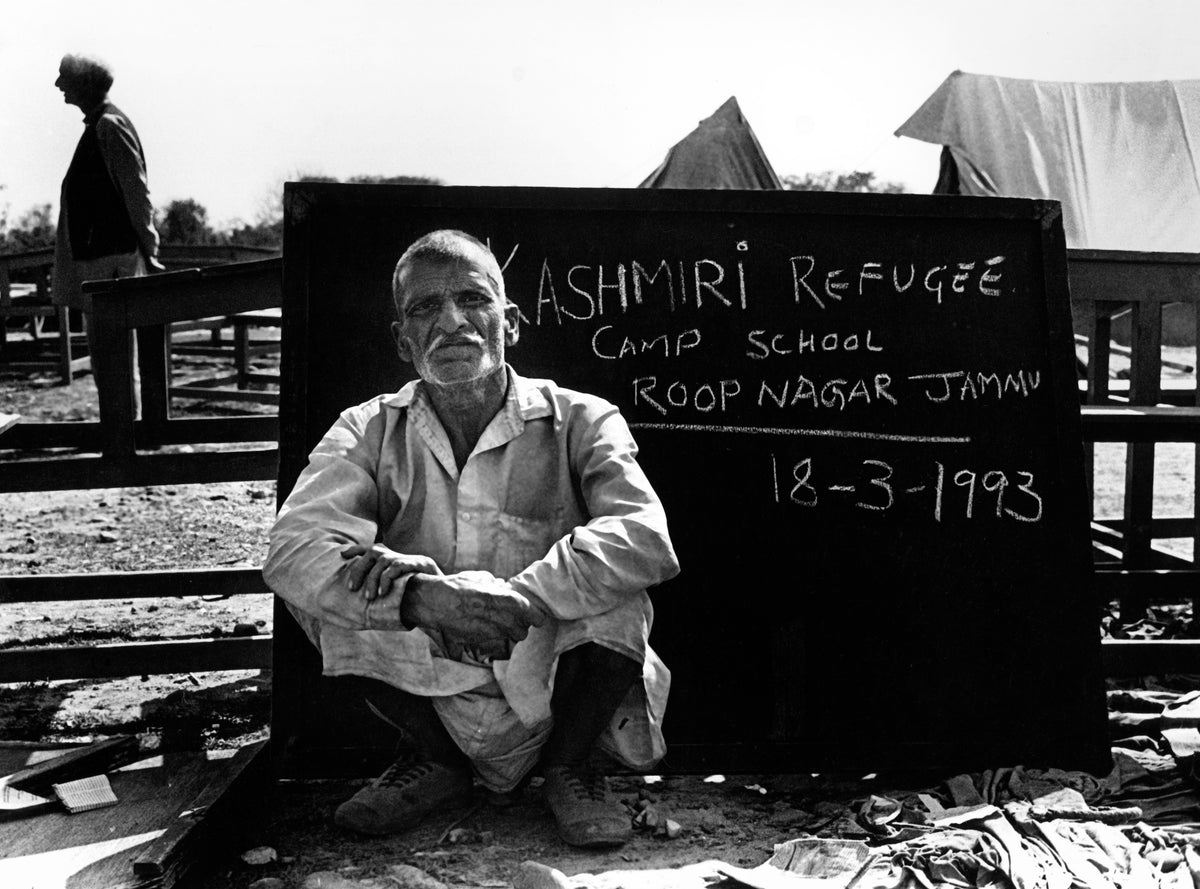 KASHMIRi REFUGEE
CAMP SCHOOL
ROOP NAGAR JAMMU
18-3-1993